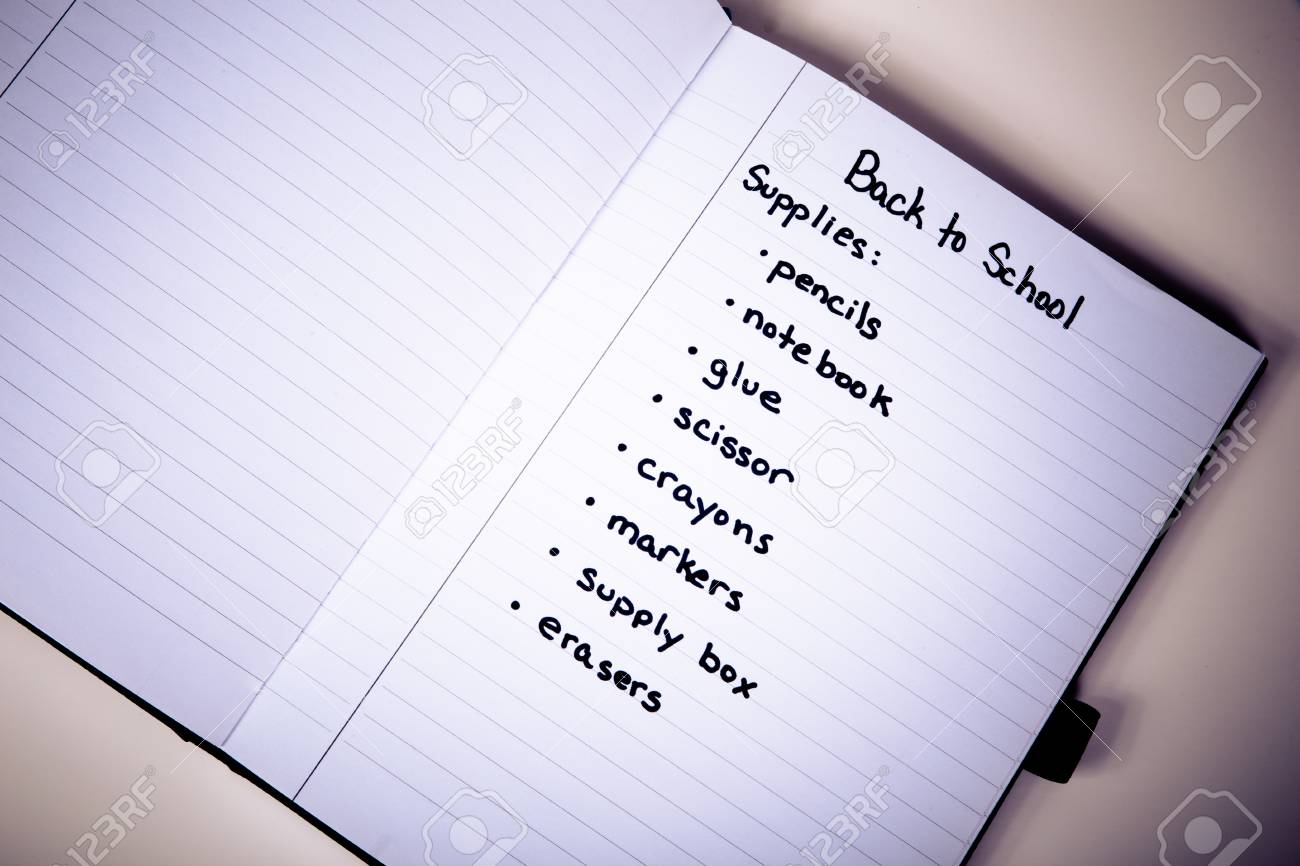 Back to School
Supplies:
• pencils
• notebook
• glue
• scissor
• crayons
• markers
• supply box
• erasers
123RF
123RF
123RF
123RF
123RF
123RF